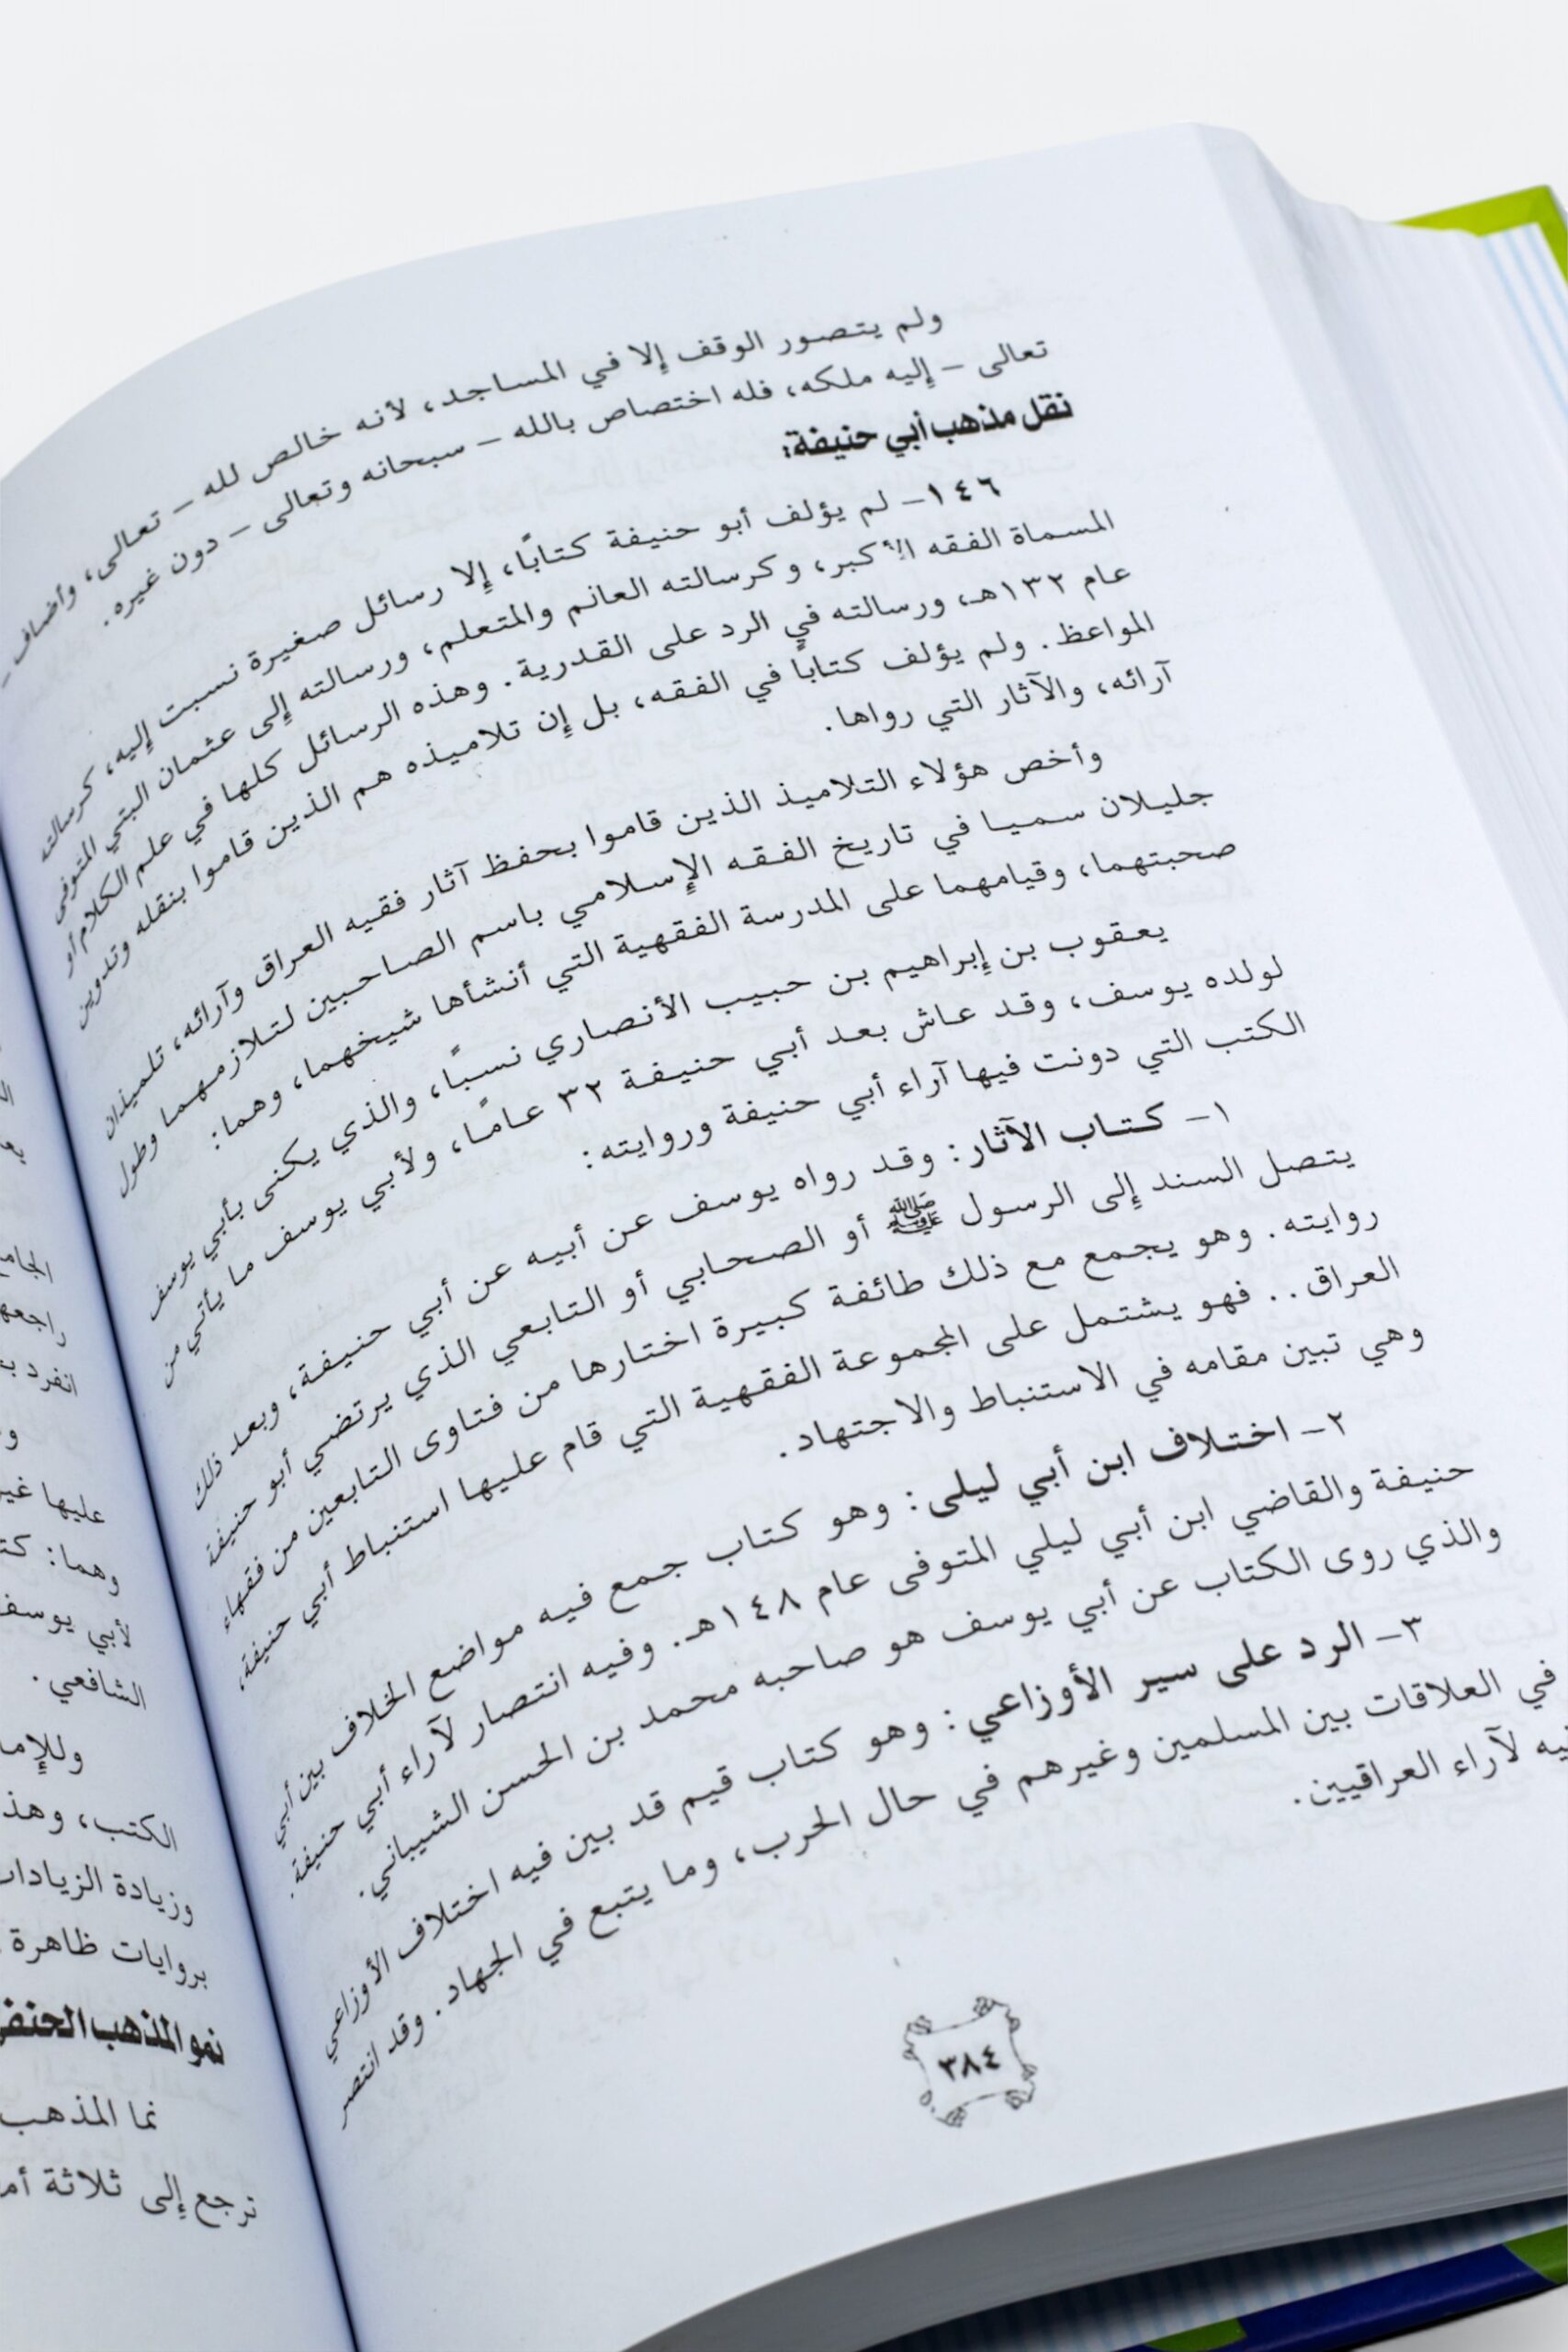 ولم يتصور الوقف إلا في المساجد، لأنه خالص لله – تعالى، وأضاف –
تعالى – إليه ملكه، فله اختصاص بالله – سبحانه وتعالى – دون غيره.
نقل مذهب أبي حنيفة:
١٤٦– لم يؤلف أبو حنيفة كتابًا، إلا رسائل صغيرة نسبت إليه، كرسالته
المسماة الفقه الأكبر، وكرسالته العالم والمتعلم، ورسالته إلى عثمان البتي المتوفى
عام ١٣٢هـ، ورسالته في الرد على القدرية. وهذه الرسائل كلها في علم الكلام أو
المواعظ. ولم يؤلف كتابًا في الفقه، بل إن تلاميذه هم الذين قاموا بنقله وتدوين
آرائه، والآثار التي رواها.
وأخص هؤلاء التلاميذ الذين قاموا بحفظ آثار فقيه العراق وآرائه، تلميذان
جليلان سميا في تاريخ الفقه الإسلامي باسم الصاحبين لتلازمهما وطول
صحبتهما، وقيامهما على المدرسة الفقهية التي أنشأها شيخهما، وهما:
يعقوب بن إبراهيم بن حبيب الأنصاري نسبًا، والذي يكنى بأبي يوسف
لولده يوسف، وقد عاش بعد أبي حنيفة ٣٢ عامًا، ولأبي يوسف ما يأتي من
الكتب التي دونت فيها آراء أبي حنيفة وروايته:
١– كتاب الآثار: وقد رواه يوسف عن أبيه عن أبي حنيفة، وبعد ذلك
يتصل السند إلى الرسول ﷺ أو الصحابي أو التابعي الذي يرتضي أبو حنيفة
روايته. وهو يجمع مع ذلك طائفة كبيرة اختارها من فتاوى التابعين من فقهاء
العراق.. فهو يشتمل على المجموعة الفقهية التي قام عليها استنباط أبي حنيفة،
وهي تبين مقامه في الاستنباط والاجتهاد.
٢– اختلاف ابن أبي ليلى: وهو كتاب جمع فيه مواضع الخلاف بين أبي
حنيفة والقاضي ابن أبي ليلي المتوفى عام ١٤٨هـ. وفيه انتصار لآراء أبي حنيفة.
والذي روى الكتاب عن أبي يوسف هو صاحبه محمد بن الحسن الشيباني.
٣– الرد على سير الأوزاعي: وهو كتاب قيم قد بين فيه اختلاف الأوزاعي
في العلاقات بين المسلمين وغيرهم في حال الحرب، وما يتبع في الجهاد. وقد انتصر
لآراء العراقيين.
٣٨٤
راجعها
انفرد
عليها
وهما:
لأبي يوسف
الشافعي.
الكتب، وهذ
وزيادة الزيادات
بروايات ظاهرة
نمو المذهب الحنفي
نما المذهب
ترجع إلى ثلاثة